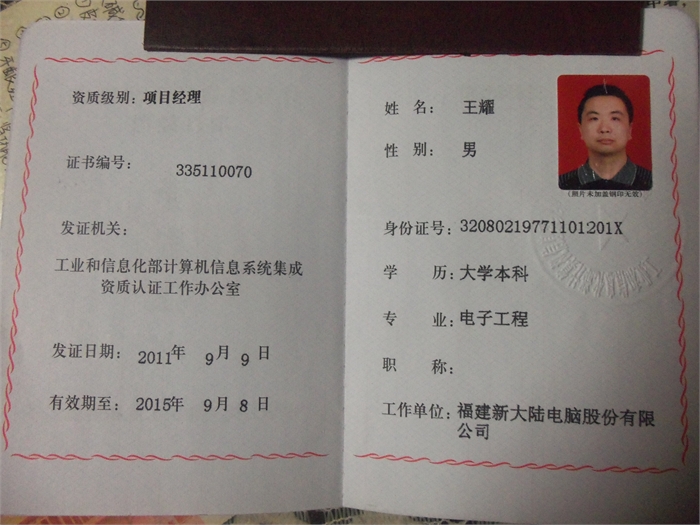 资质级别：项目经理
证书编号：
335110070
发证机关：
工业和信息化部计算机信息系统集成
资质认证工作办公室
发证日期： 2011年 9月 9日
有效期至： 2015年 9月 8日
姓 名： 王耀
性 别： 男
(照片未加盖钢印无效)
身份证号：32080219771101201X
学 历：大学本科
专 业：电子工程
职 称：
工作单位：福建新大陆电脑股份有限
公司